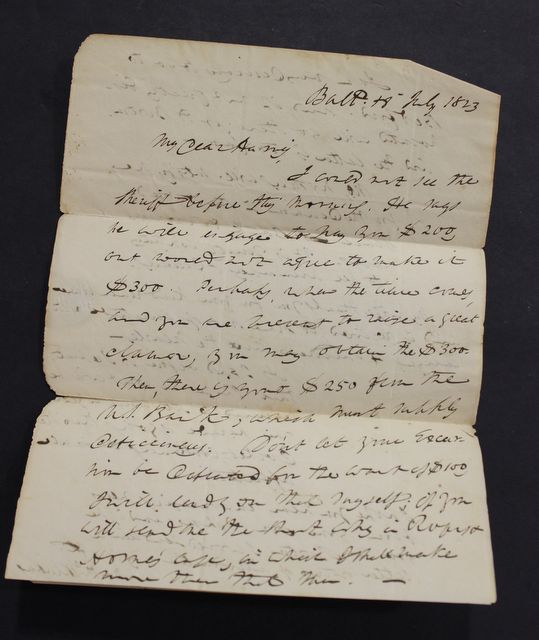 Balt. 18 July 1823
My Dear Harry,
I could not see the
Sheriff before this morning. He says
he will engage to pay you $200,
but would not agree to make it
$300. Perhaps, when the time comes,
and you are present to raise a great
clamor, you may obtain the $300.
Then, there is your $250 from the
U.S. Bank, which must supply
deficiencies. Don't let your Excur-
sion be defeated for the want of $100
I will lend you that myself, if you
will send me the short in
case, in which I shall make
more than that then. —